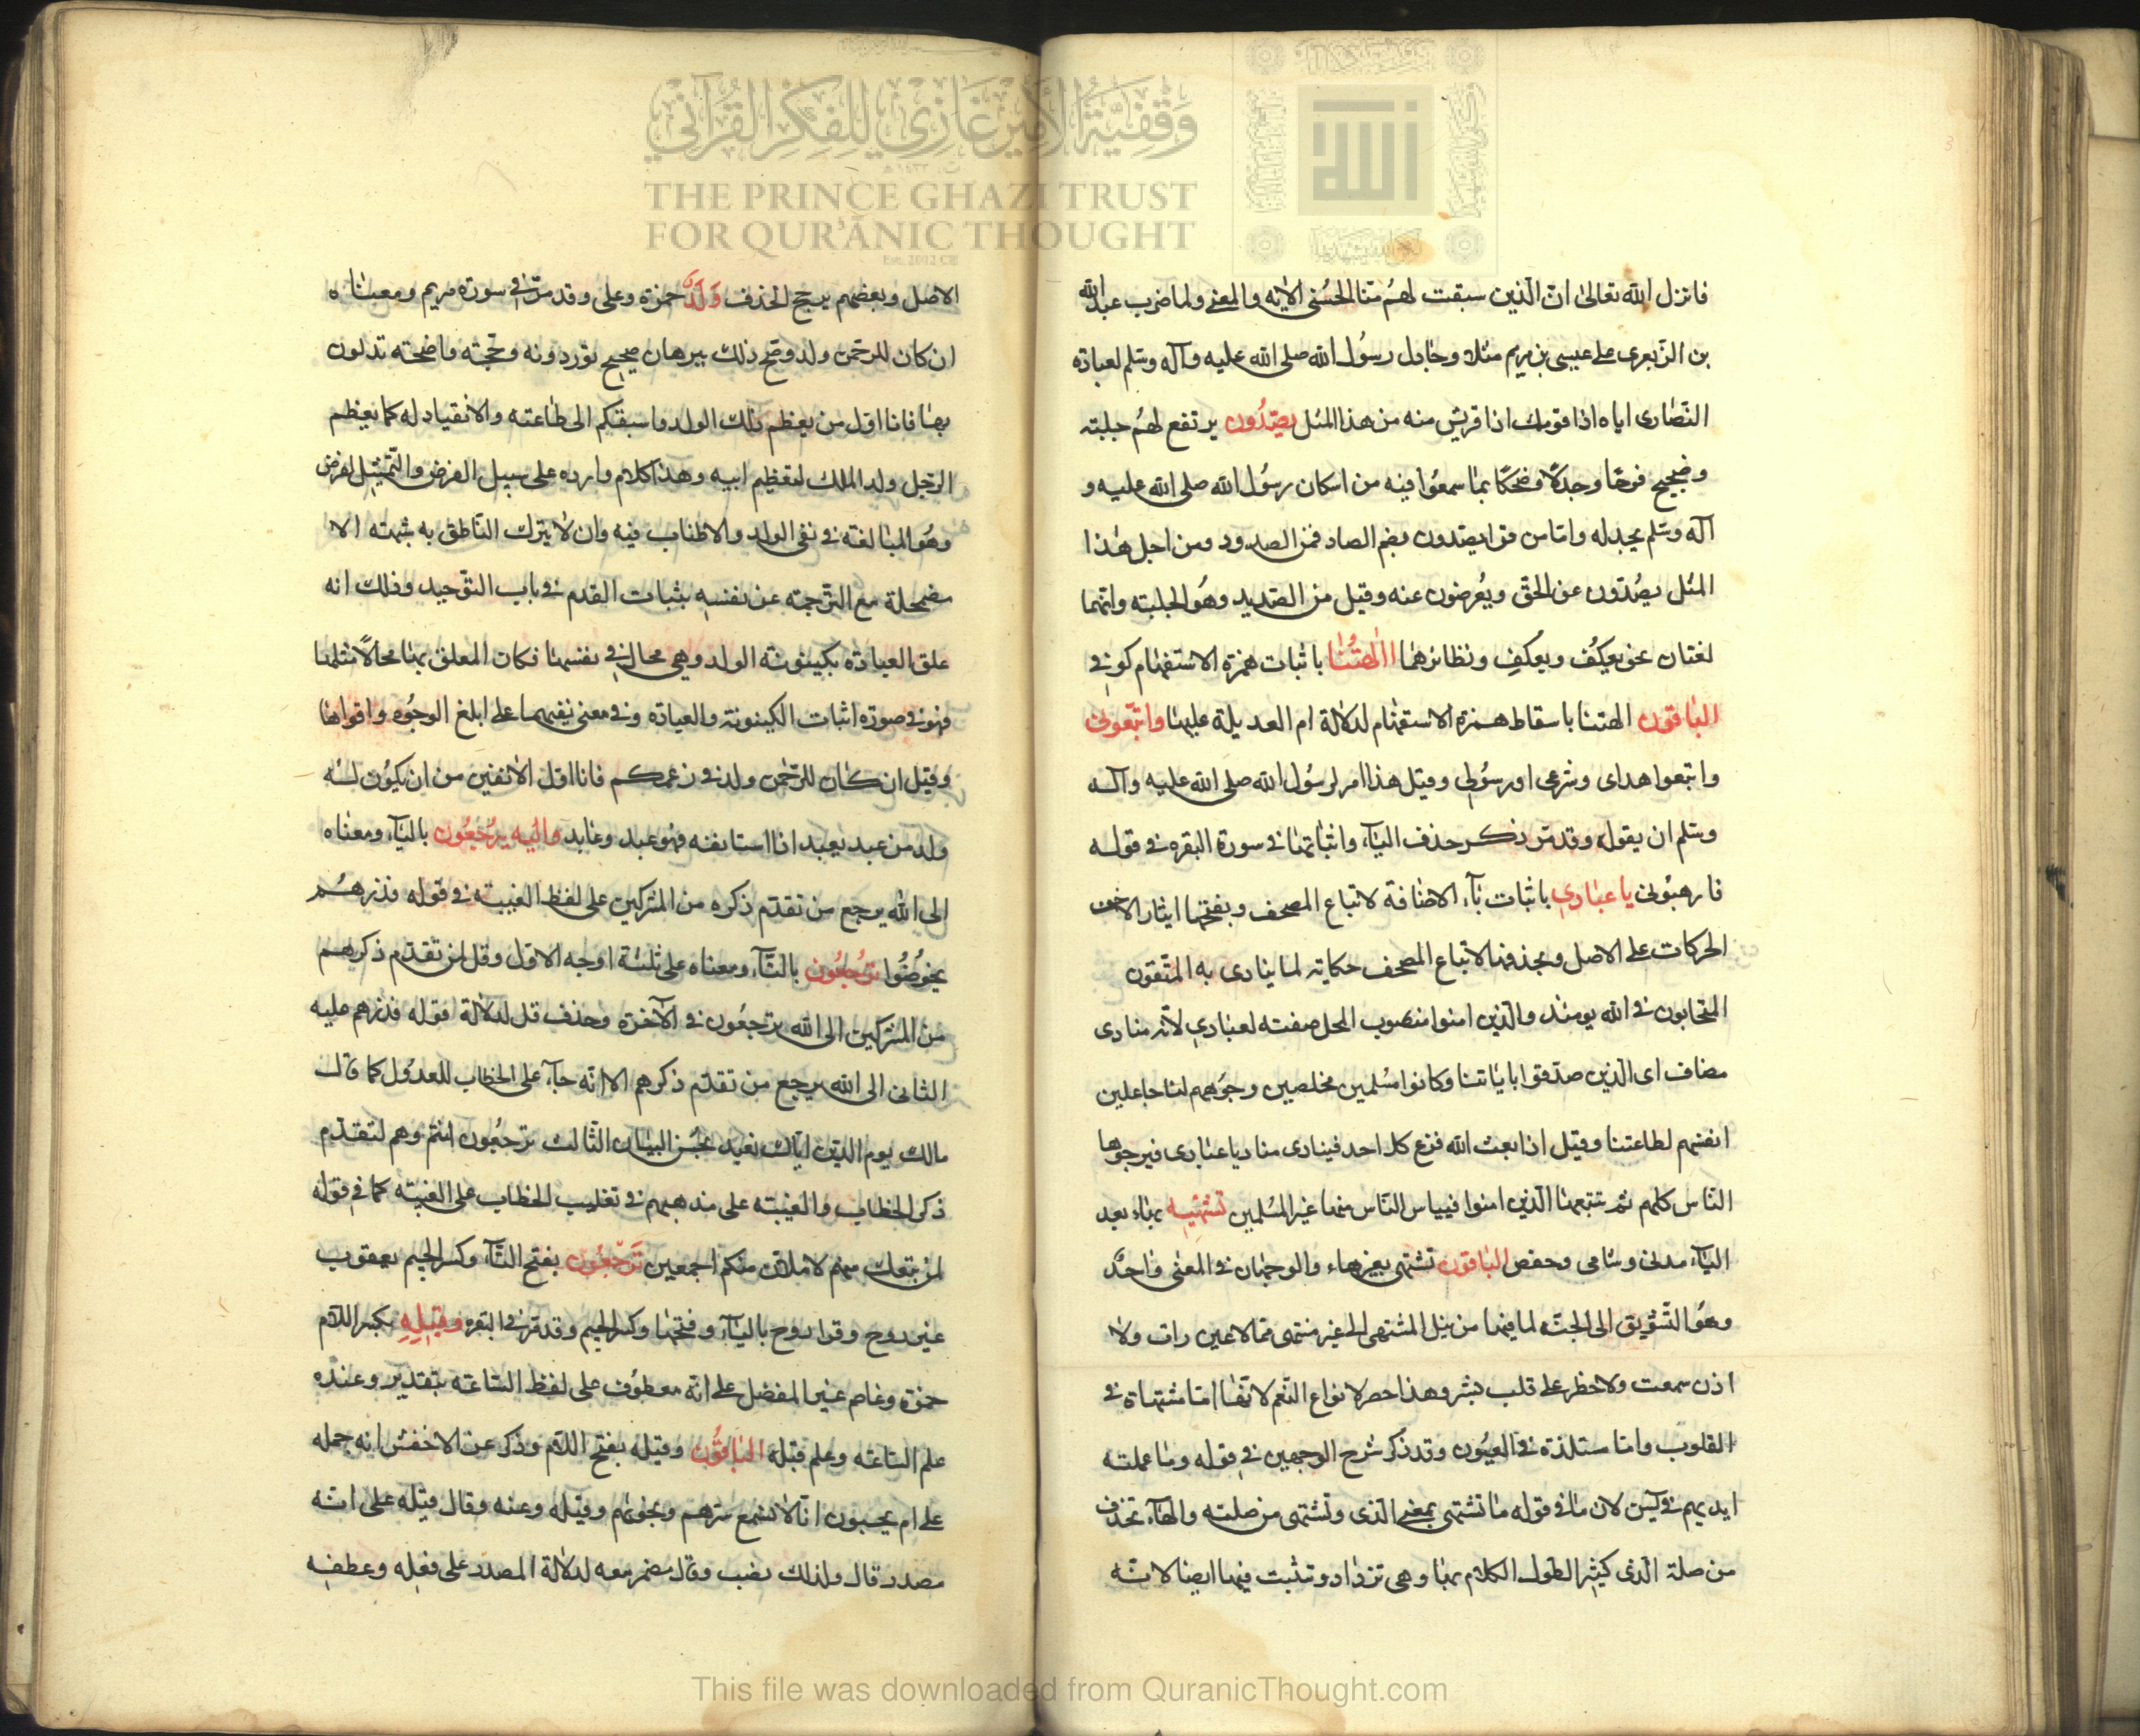 وقفية الأمير غازي للفكر القرآني
THE PRINCE GHAZI TRUST
FOR QUR'ĀNIC THOUGHT
Est. 2012 CE
فانزل الله تعالى ان الذين سبقت لهم منا الحسنى الاية والمعنى ولما ضرب عبد الله
بن الزبعرى على عيسى بن مريم مثلا وجادل رسول الله صلى الله عليه وآله وسلم لعبادة
النصارى اياه اذا قومك اذا قريش منه من هذا المثل يصدون يرتفع لهم جلبته
وضجيج فرحا وجدلا وضحكا بما سمعوا فيه من اسكان رسول الله صلى الله عليه و
آله وسلم بجدله واما من قرا يصدون بضم الصاد فمن الصدود ومن اجل هذا
المثل يصدون عن الحق ويعرضون عنه وقيل من الصديد وهو الجلبته وانهما
لغتان نحو يعكف ويعكف ونظائرهما االهتنا باثبات همزة الاستفهام كوفي
الباقون الهتنا باسقاط همزة الاستفهام لدلالة ام العديلة عليها واتبعونى
واتبعوا هداى وشرعى او رسولى وقيل هذا امر لرسول الله صلى الله عليه وآله
وسلم ان يقوله وقد مر ذكر حذف الياء واثباتها في سورة البقره في قوله
فارهبونى يا عبادي باثبات ياء الاضافة لاتباع المصحف وبفتحها ايثار الاخف
الحركات على الاصل وبحذفها لاتباع المصحف حكاية لما ينادى به المتقون
المتحابون في الله يومئذ والذين امنوا منصوب المحل صفته لعبادي لانه منادى
مضاف اى الذين صدقوا باياتنا وكانوا مسلمين مخلصين وجوههم لنا جاعلين
انفسهم لطاعتنا وقيل اذا بعث الله فزع كل احد فينادى مناد يا عبادى فيرجوها
الناس كلهم ثم تتبعها الذين امنوا فيياس الناس منها غير المسلمين تشتهيه بهاء بعد
الياء مدنى وشامى وحفص الباقون تشتهى بغير هاء والوجهان في المعنى واحد
وهو التشويق الى الجنة لما فيها من نيل المشتهى الى غير منتهى مما لا عين رات ولا
اذن سمعت ولا خطر على قلب بشر وهذا حصر لانواع النعم لانها اما مشتهاة في
القلوب واما ستلذة في العيون وقد ذكر شرح الوجهين في قوله وما عملته
ايديهم في يس لان ما في قوله ما تشتهى بمعنى الذى وتشتهى من صلته والهاء تحذف
من صلة الذى كثير الطول الكلام بها وهى تزداد وتثبت فيها ايضا لانه
الاصل وبعضهم يرجح الحذف ولد حمزة وعلى وقد مرت في سورة مريم ومعناه
ان كان للرحمن ولد وصح ذلك ببرهان صحيح توردونه وحجته واضحته تدلون
بها فانا اول من يعظم ذلك الولد واسبقكم الى طاعته والانقياد له كما يعظم
الرجل ولد الملك لتعظيم ابيه وهذا كلام وارد على سبيل الفرض والتمثيل لغرض
وهو المبالغة في نفى الولد والاطناب فيه وان لا يترك الناطق به شبهته الا
مضمحلة مع الترجمة عن نفسه بثبات القدم في باب التوحيد وذلك انه
علق العبادة بكينونته الولد وهى محال في نفسها فكان المعلق بها محالا مثلها
فهو في صورة اثبات الكينونة والعبادة وفي معنى نفيهما على ابلغ الوجوه واقواها
وقيل ان كان للرحمن ولد في زعمكم فانا اول الانفين من ان يكون له
ولد من عبد يعبد اذا استانفه فهو عبد وعابد واليه يرجعون بالياء ومعناه
الى الله يرجع من تقدم ذكره من المشركين على لفظ الغيبته في قوله فذرهم
يخوضوا ترجعون بالتاء ومعناه على ثلثة اوجه الاول وقل لمن تقدم ذكرهم
من المشركين الى الله ترجعون في الآخرة وحذف قل لدلالة قوله فذرهم عليه
الثانى الى الله يرجع من تقدم ذكرهم الا انه جاء على الخطاب للعدول كما قال
مالك يوم الدين اياك نعبد بحسن البيان الثالث ترجعون انتم وهم لتقدم
ذكر الخطاب والغيبته على مذهبهم في تغليب الخطاب على الغيبته كما في قوله
لمن تبعك منهم لاملان منكم اجمعين ترجعون بفتح التاء وكسر الجيم يعقوب
غير روح وقرا روح بالياء وفتحها وكسر الجيم وقد مر في البقرة وقيله بكسر اللام
حمزة وعاصم غير المفضل على انه معطوف على لفظ الساعة بتقدير وعنده
علم الساعة وعلم قيله الباقون وقيله بفتح اللام وذكر عن الاخفش انه حمله
على ام يحسبون انا لا نسمع سرهم ونجونهم وقيله وعنه وقال قيله على انه
مصدر قال ولذلك نصب وقال مضمر معه لدلالة المصدر على فعله وعطفه
This file was downloaded from QuranicThought.com